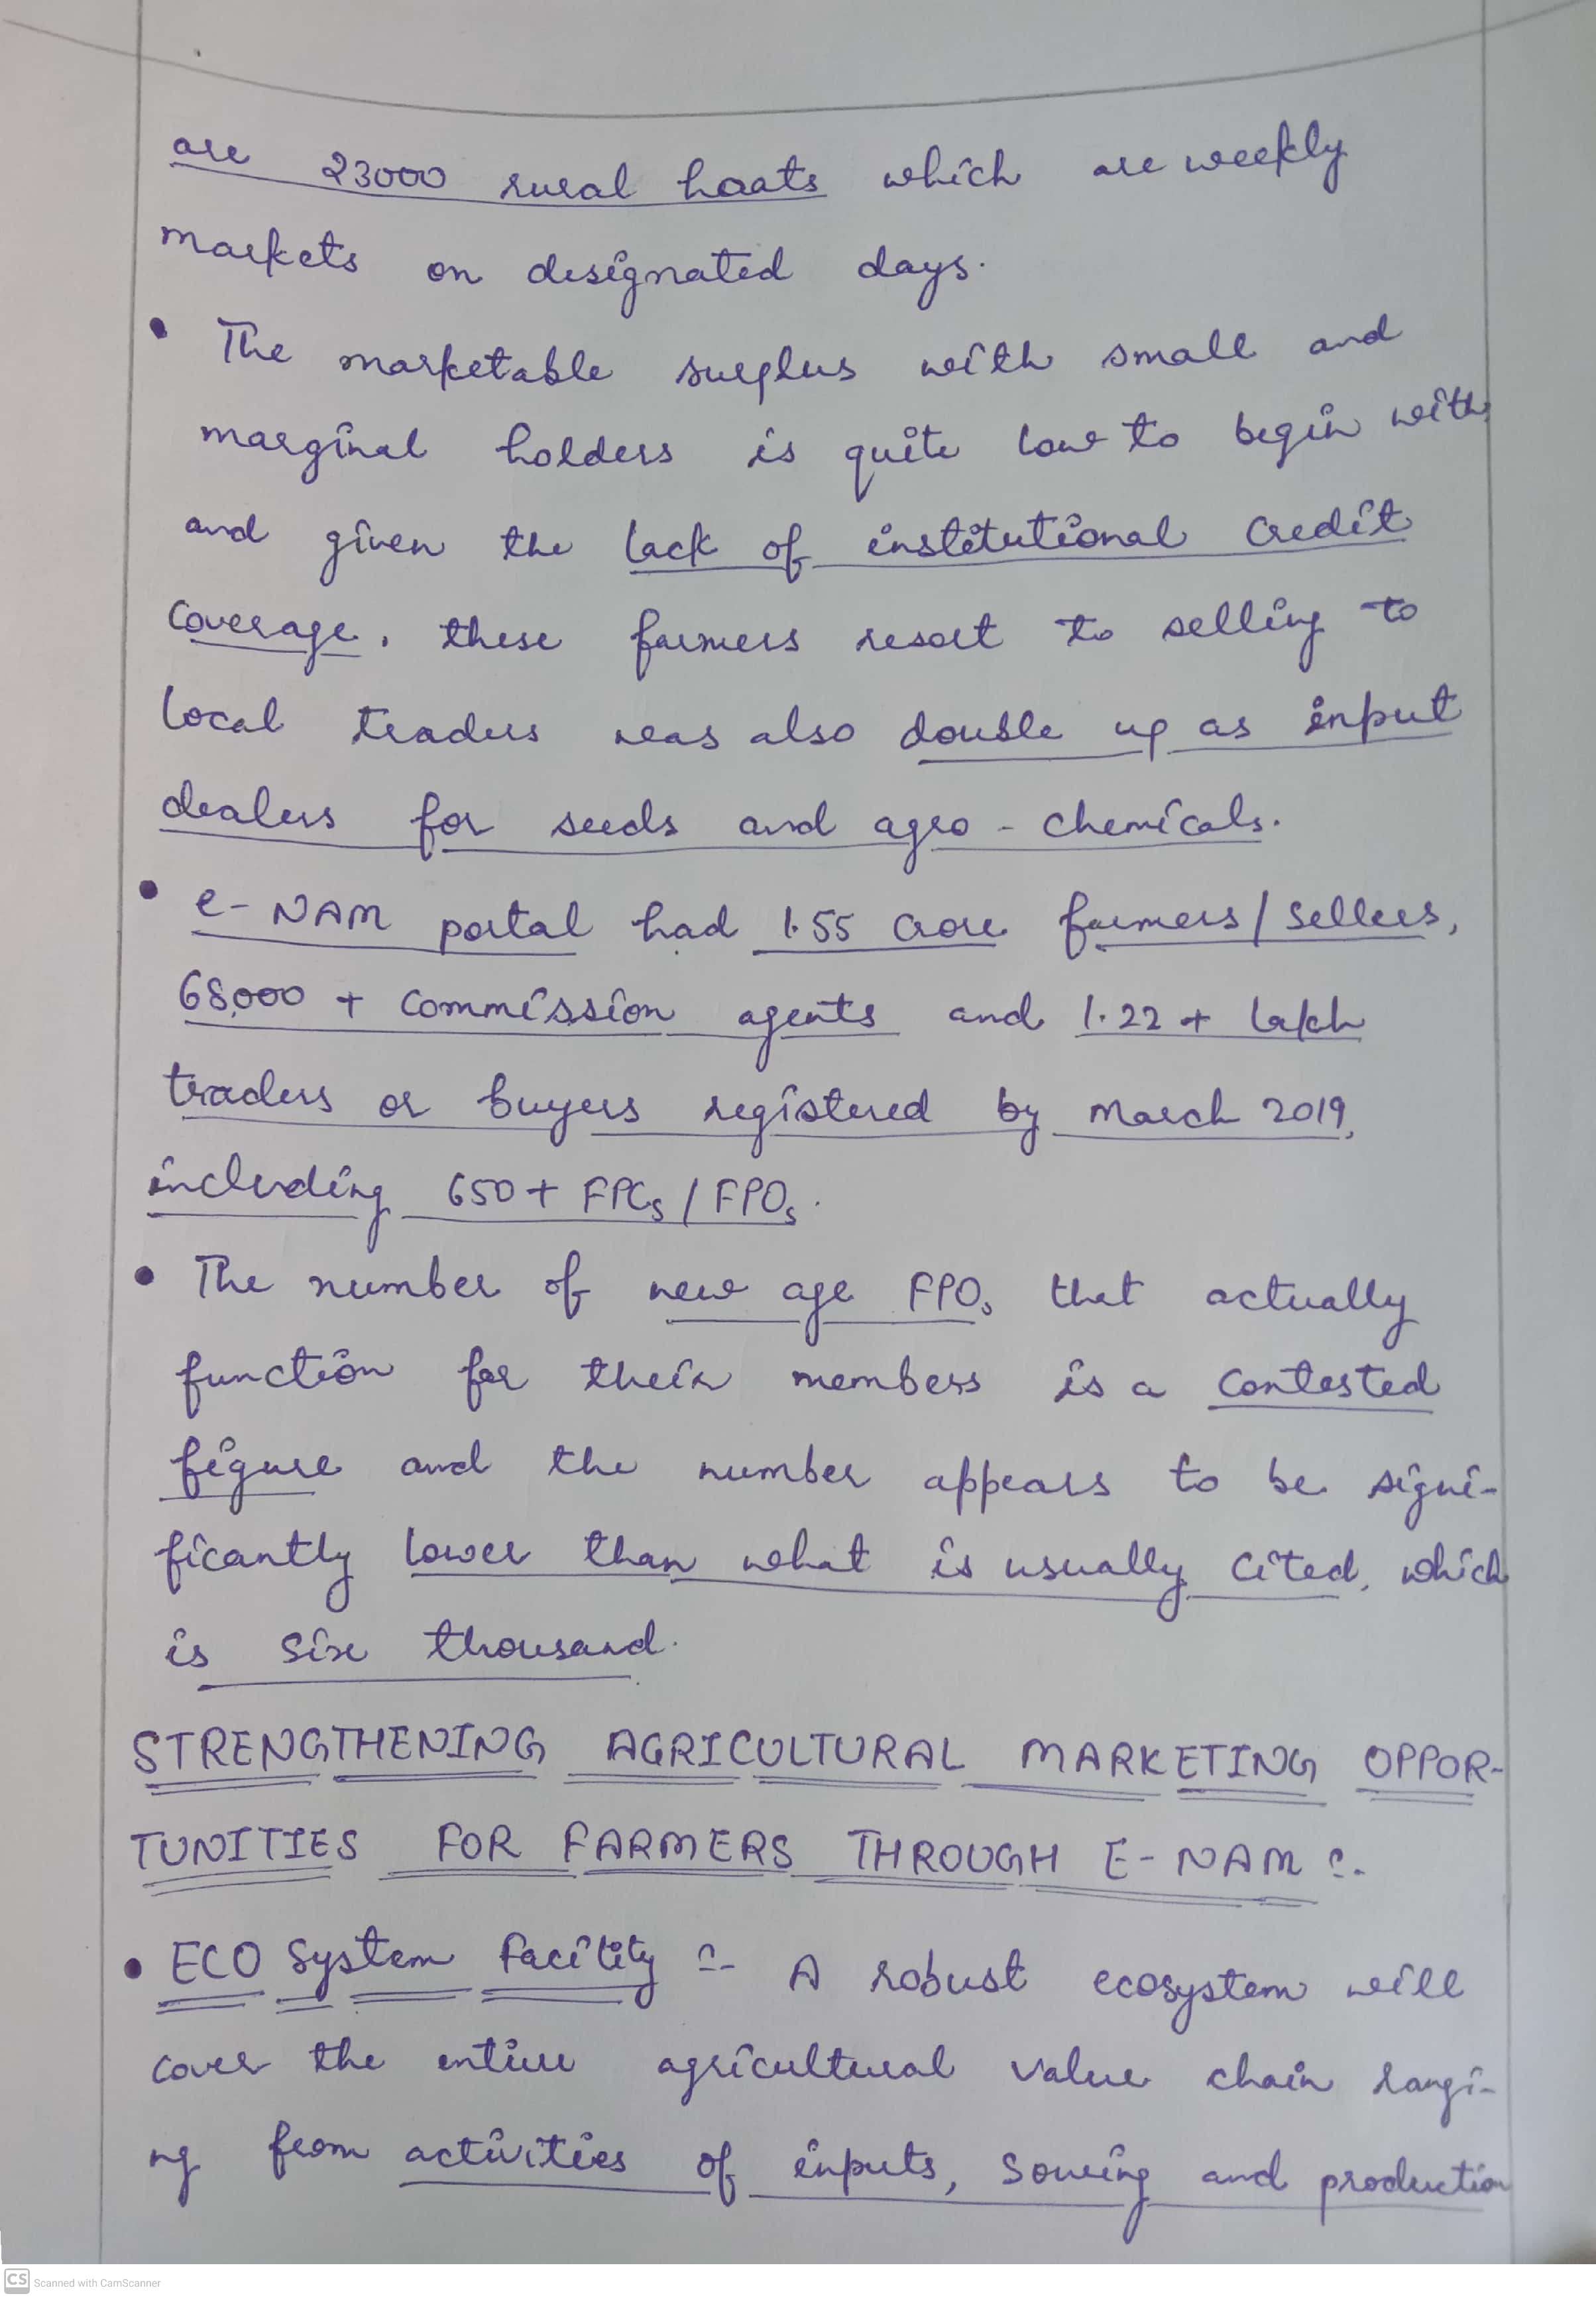 are 23000 rural haats which are weekly
markets on designated days.
• The marketable surplus with small and
marginal holders is quite low to begin with
and given the lack of institutional credit
coverage, these farmers resort to selling to
local traders also double up as input
dealers for seeds and agro - chemicals.
• e-NAM portal had 1.55 crore farmers / sellers,
68,000 + commission agents and 1.22 + lakh
traders or buyers registered by March 2019,
including 650+ FPCs / FPOs.
• The number of new age FPOs that actually
function for their members is a contested
figure and the number appears to be signi-
ficantly lower than what is usually cited, which
is six thousand.
STRENGTHENING AGRICULTURAL MARKETING OPPOR-
TUNITIES FOR FARMERS THROUGH E-NAM :-
• ECO System Facility :- A robust ecosystem will
cover the entire agricultural value chain rangi-
ng from activities of inputs, sowing and production
CS Scanned with CamScanner